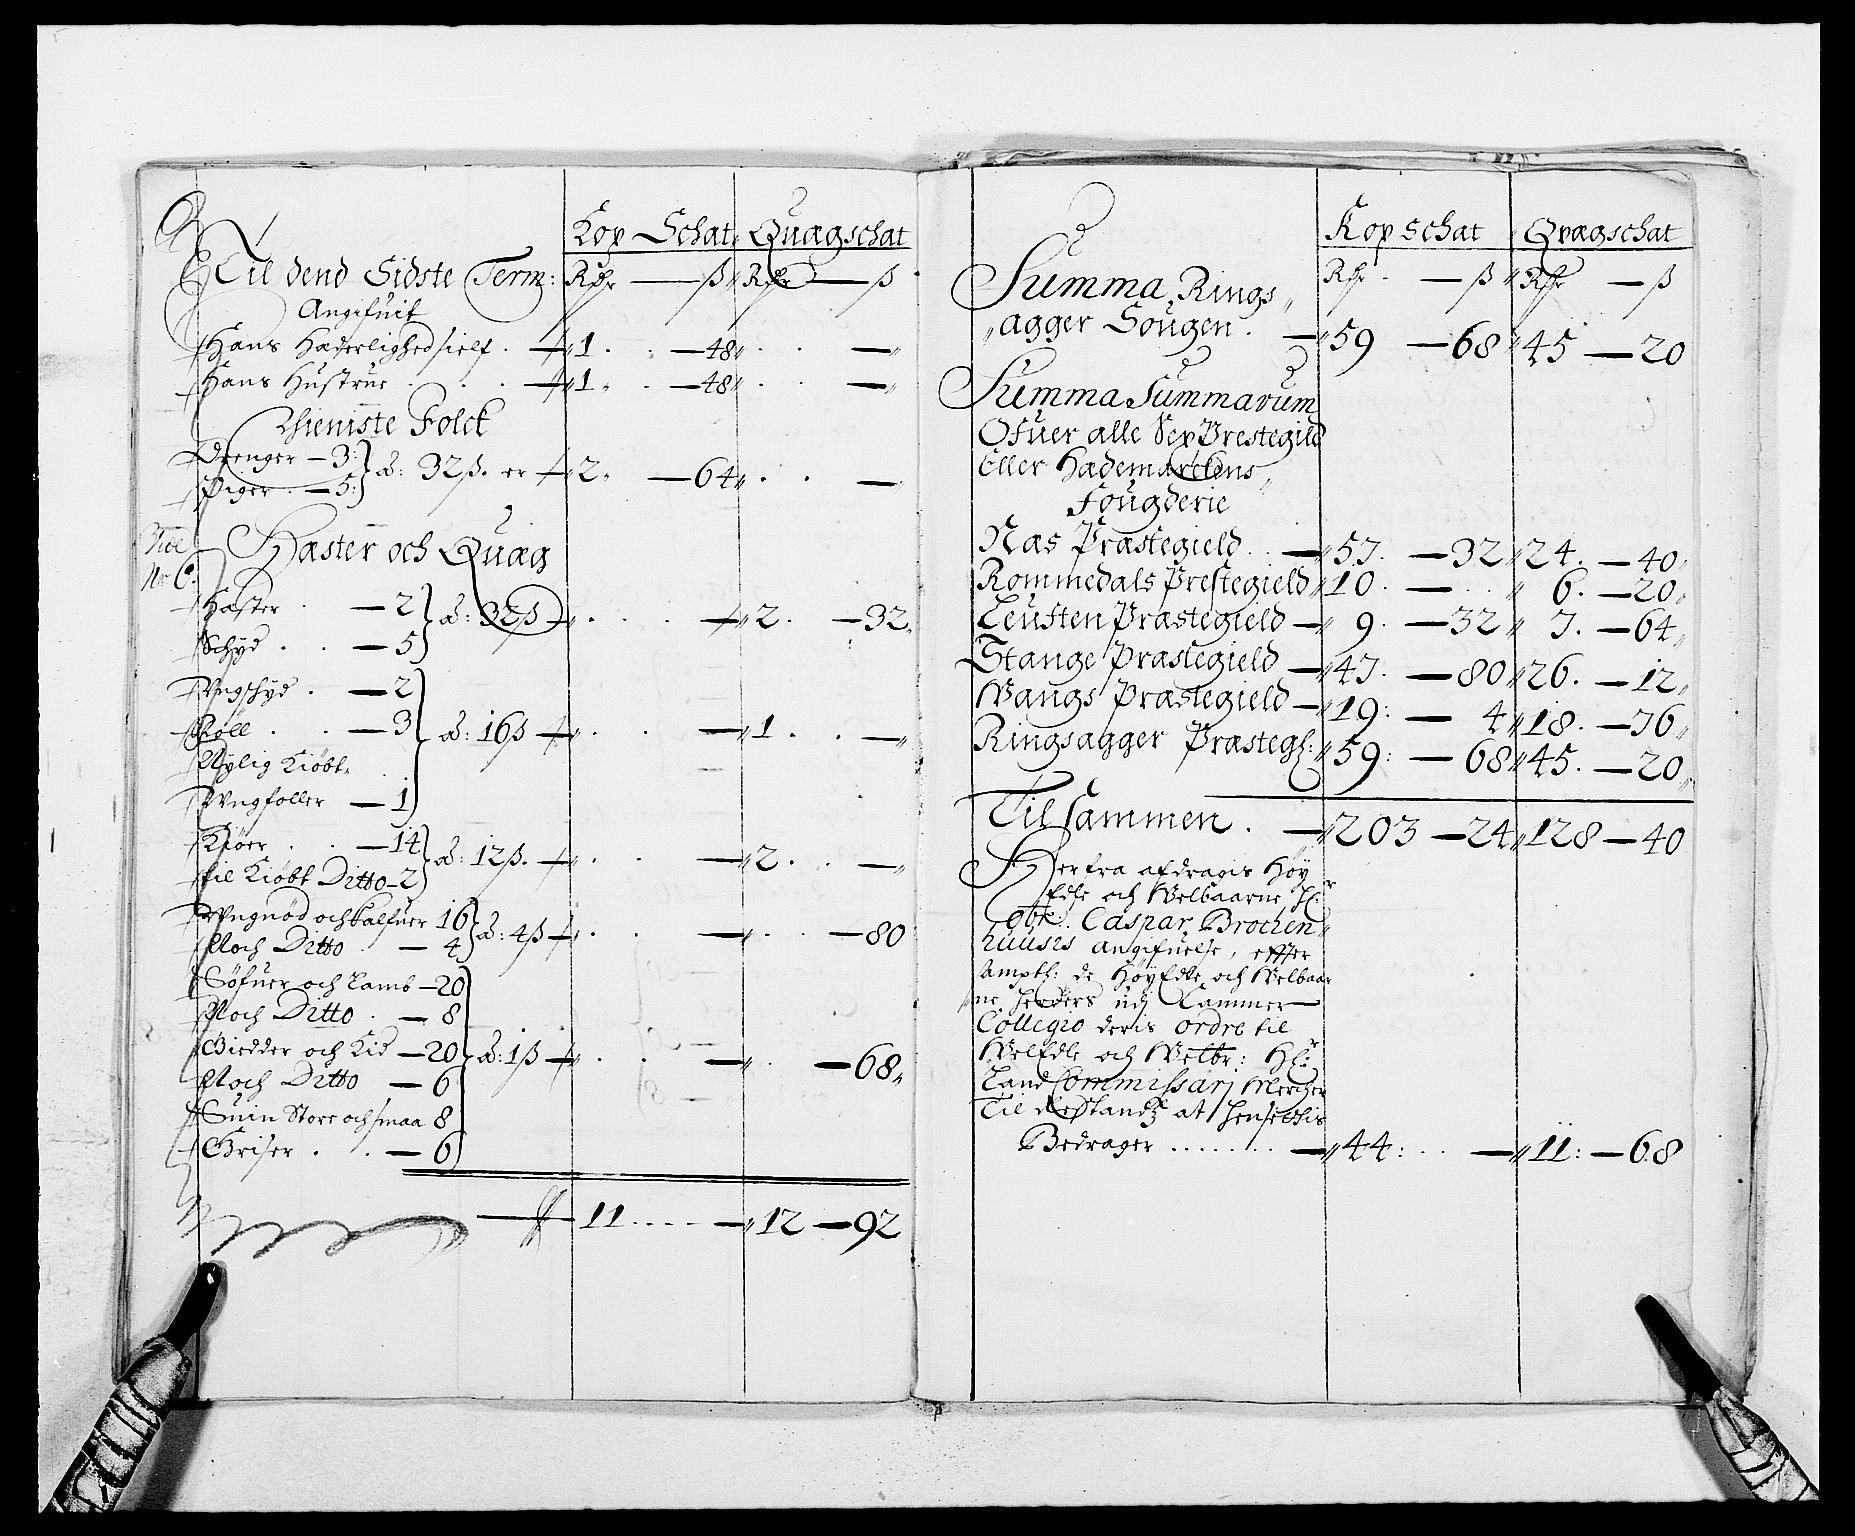 Kop Schat Quægschat
Til dend Sidste Term: Rdr — ß Rdr — ß
Angifuit
Hans Hæderlighed sielf . — 1 . — 48
Hans Hustrue . . . — 1 . — 48
Thieniste Folck
Drenger — 3
Piger . — 5 } à: 32 ß. er — 2 . — 64
Vide
No 6.
Hæster och Quæg
Hæster . — 2
Schyd . . — 5 } à: 32 ß — 2 . — 32
Ungschyd . — 2
Føll . . — 3
Nylig Kiøbt
Ungfoller — 1 } à: 16 ß — 1 . . —
Kiøer . . — 14
til Kiøbt Ditto — 2 } à: 12 ß. — 2 . . —
Ungnød och Kalfuer 16
Noch Ditto . — 4 } à: 4 ß — 80
Søfuer och Lamb — 20
Noch Ditto . — 8
Giedder och Kid — 20
Noch Ditto — 6
Suin Store och smaa 8
Griser . . — 6 } à: 1 ß — 68
11 . . . . — 12 — 92
Kop schat Qvægschat
Rdr . — ß Rdr — ß
Summa Rings
agger Sougen . — 59 — 68 45 — 20
Summa Summarum
Ofuer alle Sex Prestegild
Eller Hædemarckens
Fougderie
Næs Præstegield . . — 57 . — 32 24 . — 40
Rommedals Prestegield 10 . — . . 6 . — 20
Leusten Præstegield — 9 . — 32 7 . — 64
Stange Præstegield — 47 . — 80 26 . — 12
Wangs Præstegield — 19 : — 4 18 . — 76
Ringsagger Præsteg: 59 : — 68 45 . — 20
Til sammen . — 203 — 24 128 — 40
Herfra afdragis Høy
Edle och Welbaarne Hr:
Obr: Caspar Brochen
huusis angifuelse, effter
Ampt: de HøyEdle och Welbaar
ne Herrers udj Cammer
Collegio deris ordre til
WelEdle och Welbr: Hr:
Land Commissarj Mercher
Til Restantz at hensettis
Bedrager . . . . . . . — 44 : . . — 11 : — 68